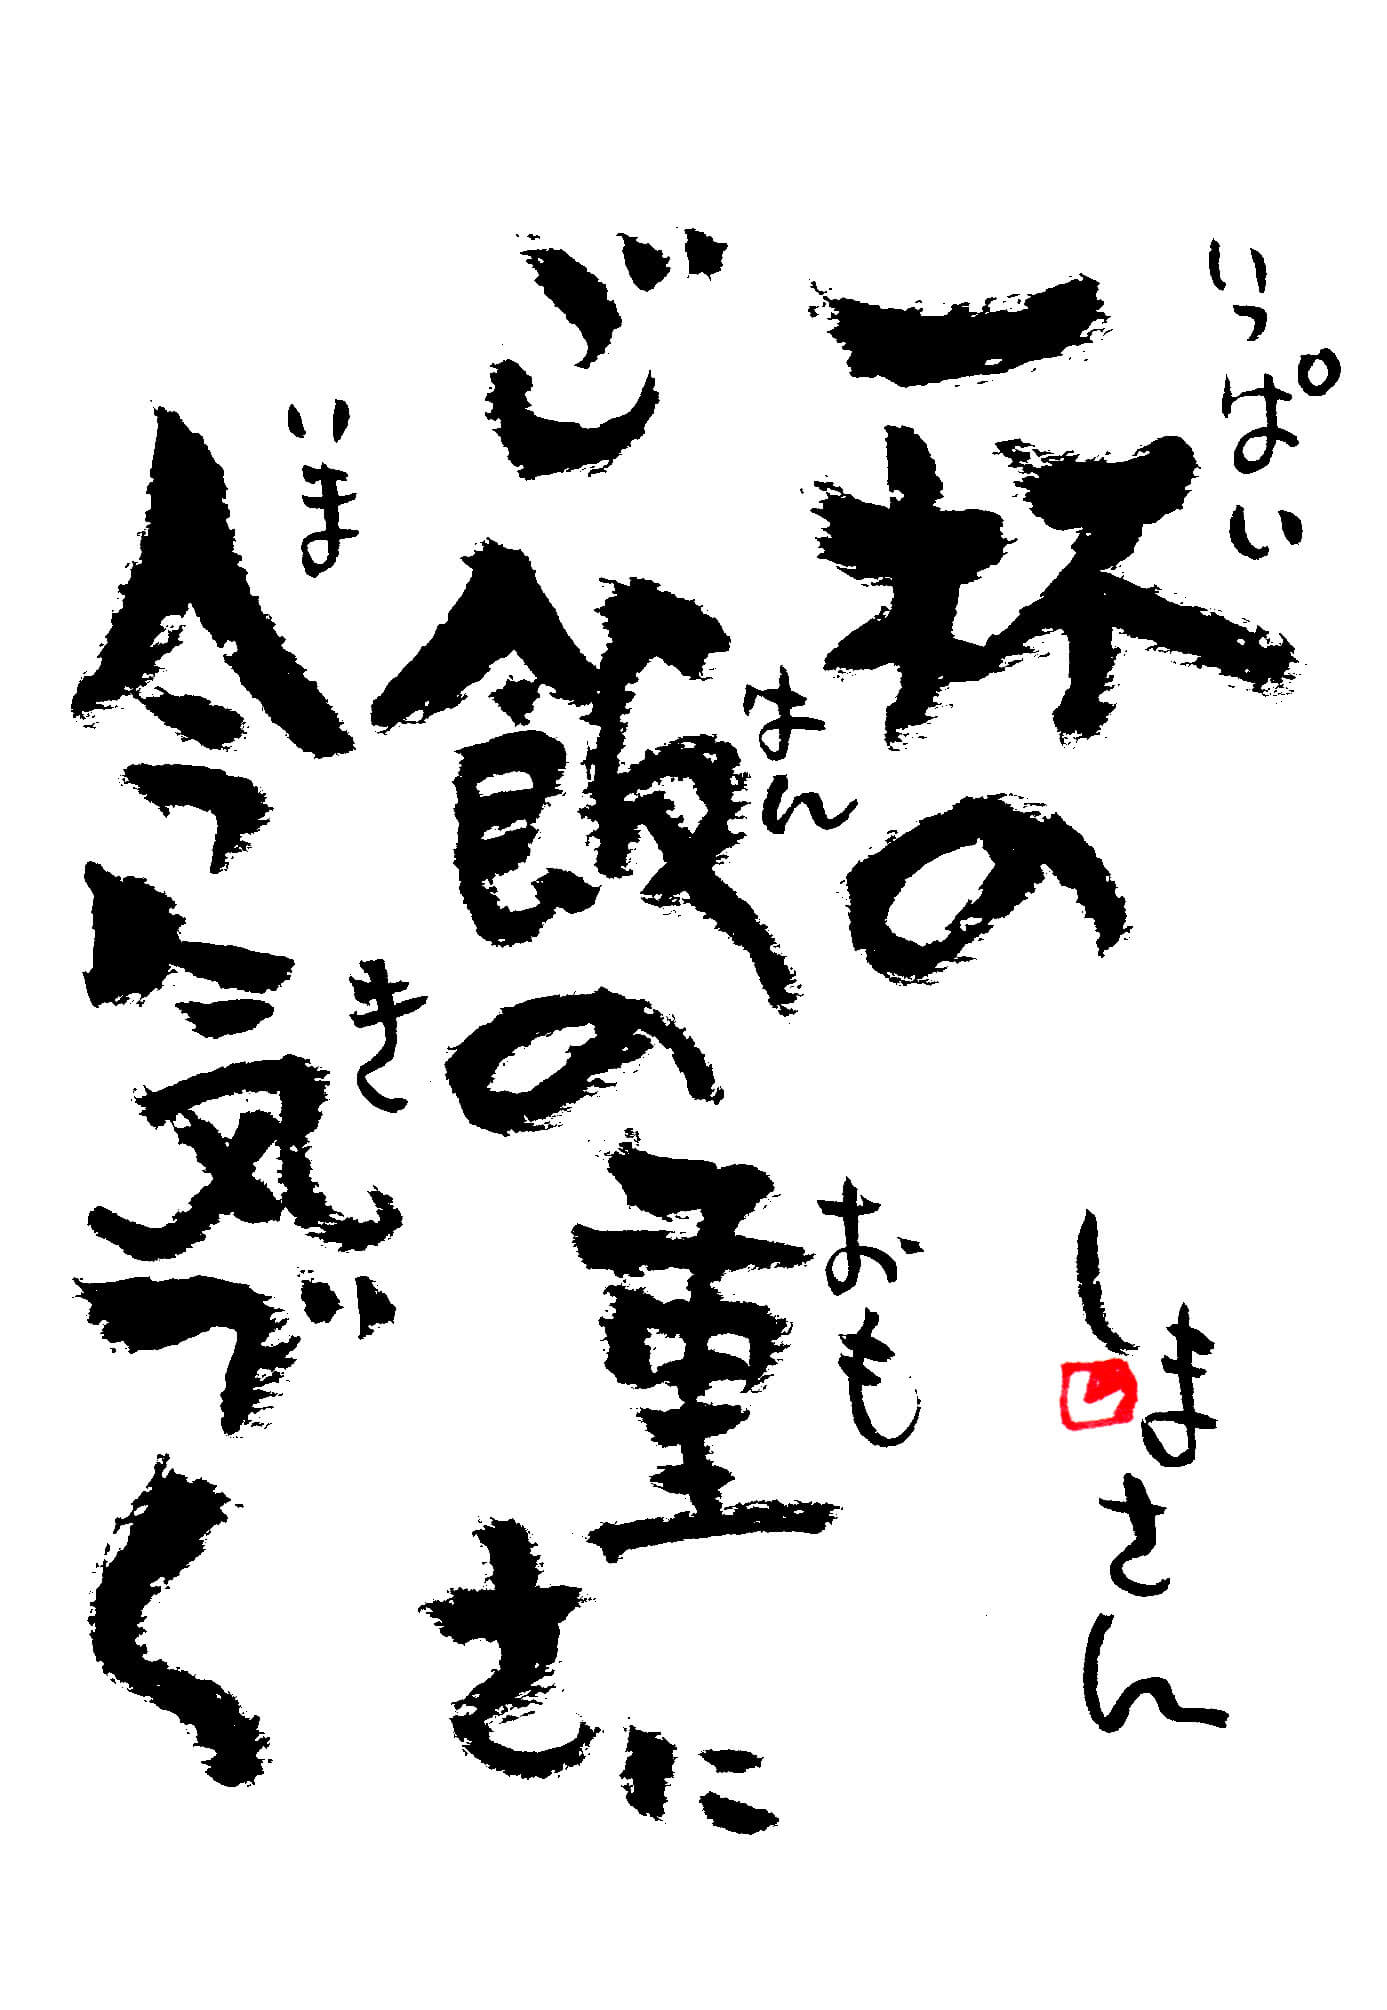 一杯の
いっぱい
ご飯の重さに
はん
おも
今今気づく
いま
き
しまさん
し